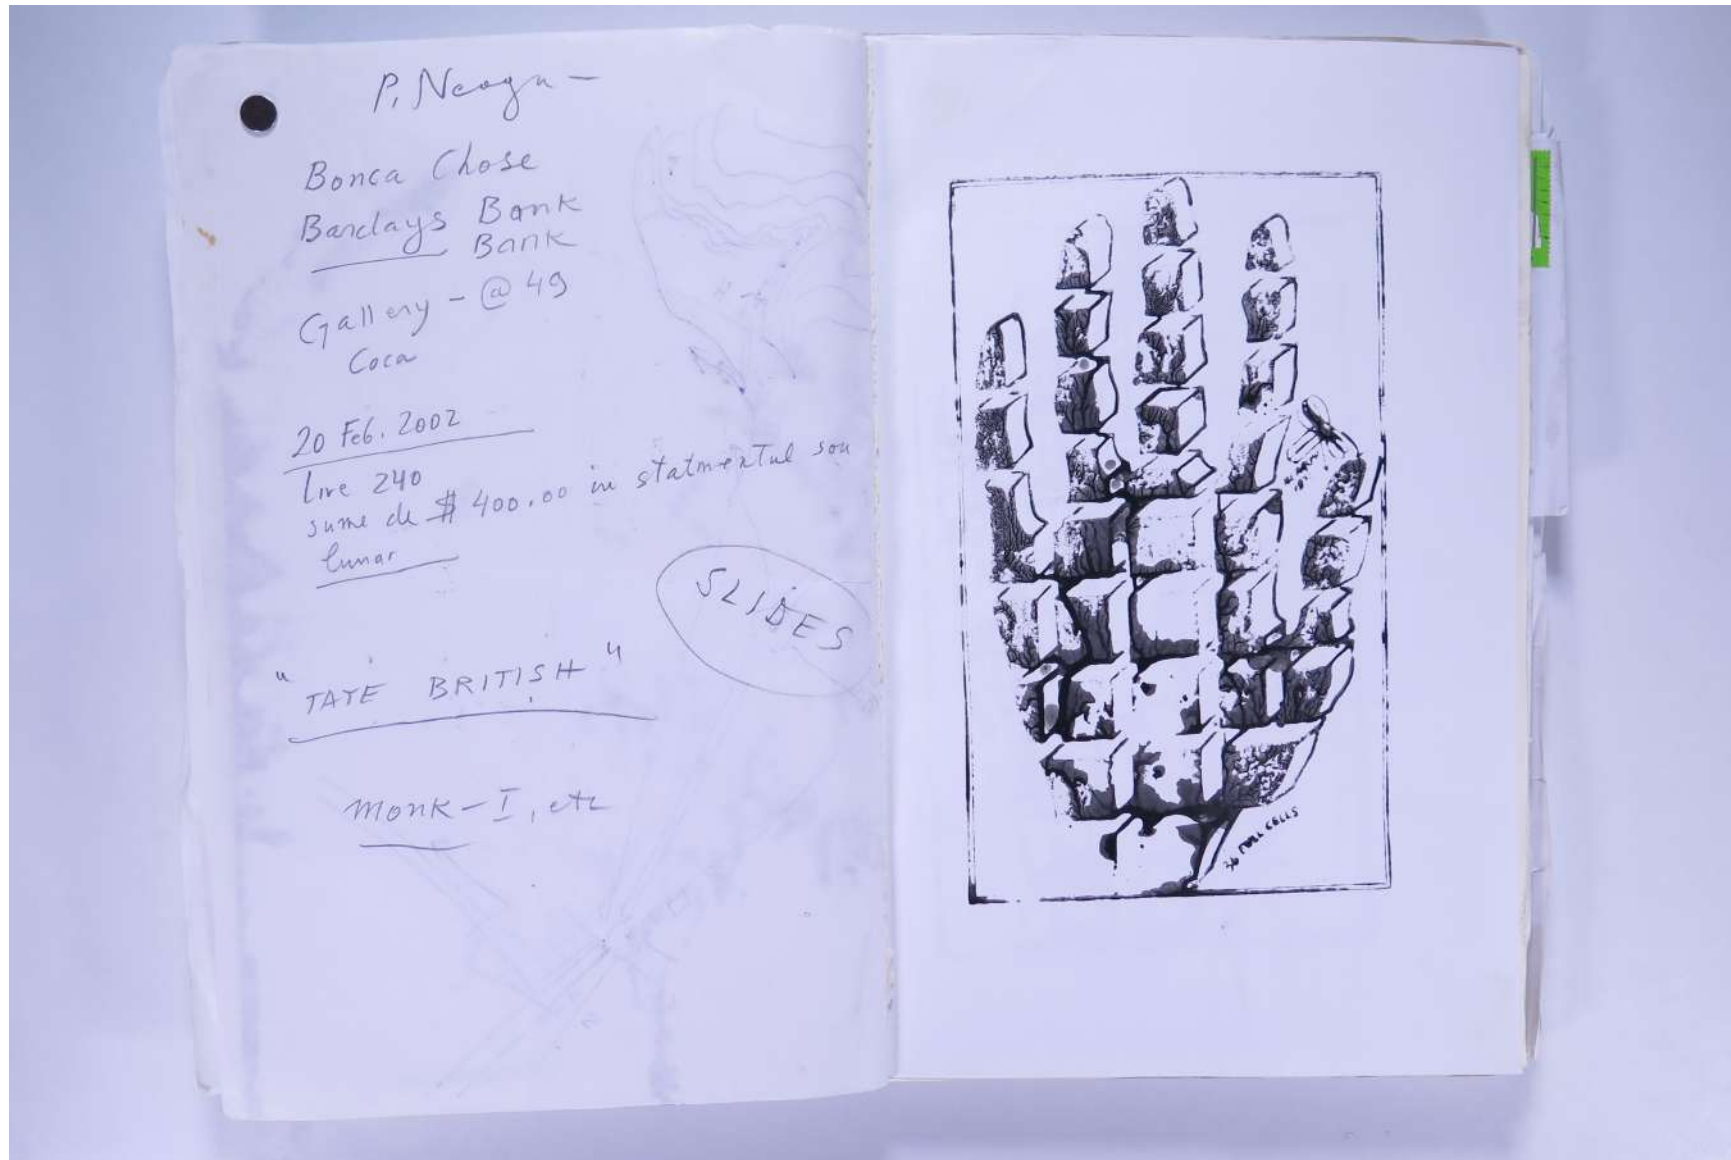 P. Neagu —
Bonca Chose
Barclays Bank
Bank
Gallery - @ 49
Coca
20 Feb. 2002
Live 240
sume de $ 400.00 in statmentul sou
lunar
SLIDES
"TATE BRITISH"
monk - I, etc
36 CELLS